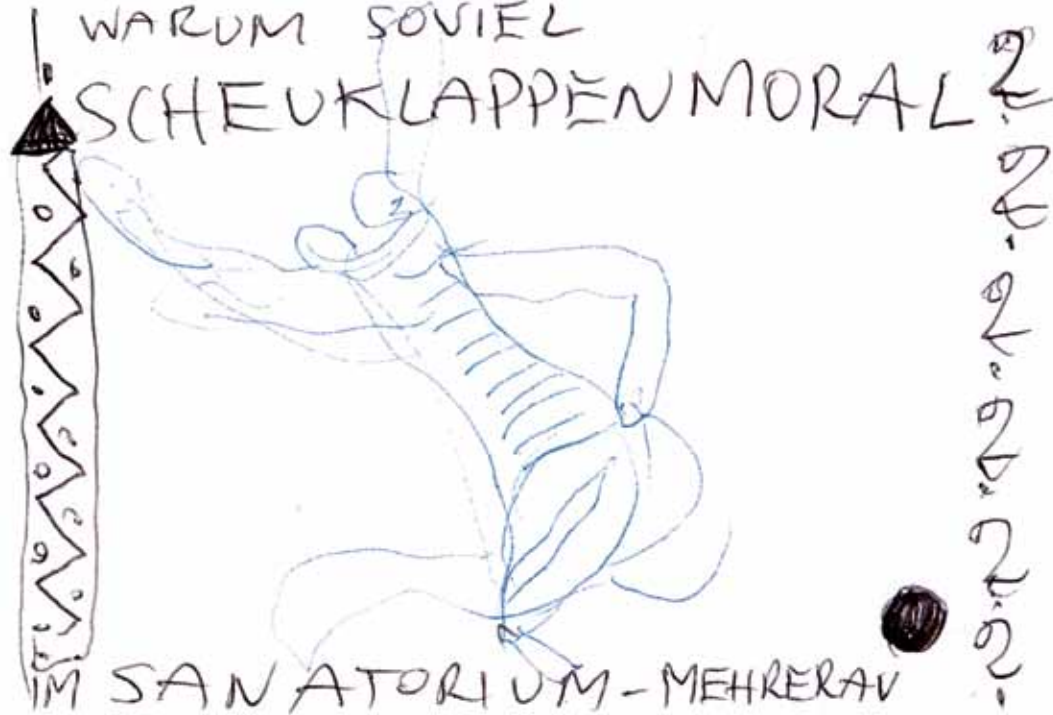 ! WARUM SOVIEL
SCHEUKLAPPENMORAL ?
?
?
?
?
?
IM SANATORIUM-MEHRERAU